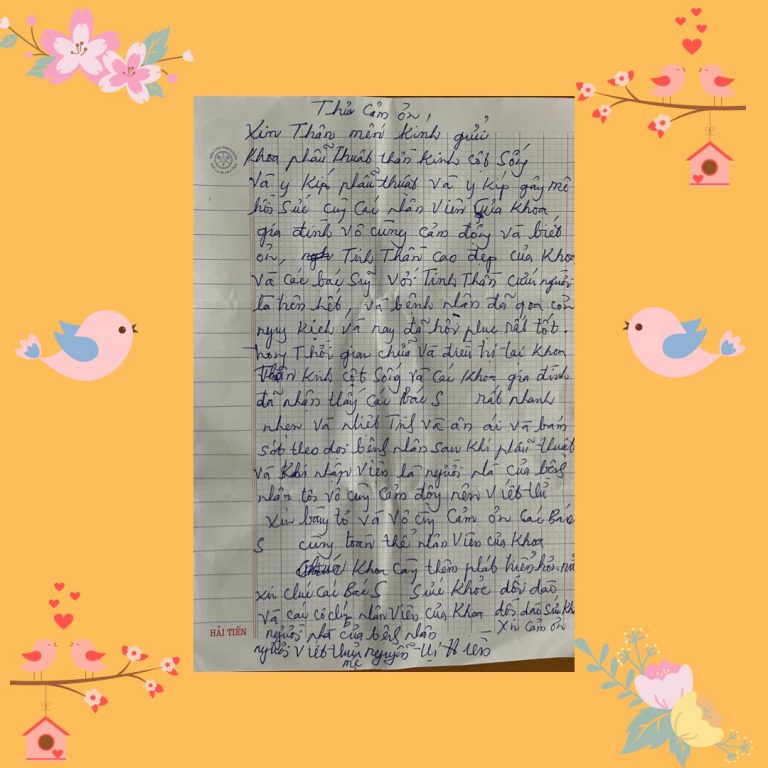 Thư cảm ơn,
Xin Thân mến Kính gửi
Khoa phẫu thuật thần kinh cột Sống
và y Kíp phẫu thuật và y kíp gây mê
hồi Sức cùng Các nhân viên của Khoa
gia đình vô cùng cảm động và biết
ơn, Tinh Thần cao đẹp của Khoa
và các bác Sỹ với Tinh Thần cứu người
là trên hết, và bệnh nhân đã qua cơn
nguy kịch và nay đã hồi phục rất tốt.
Trong Thời gian chữa và điều trị tại Khoa
Thần Kinh cột Sống và các Khoa gia đình
đã nhận thấy các Bác S rất nhanh
nhẹn và nhiệt Tình và ân ái và bám
sát theo dõi bệnh nhân sau khi phẫu thuật
và Khi nhận viên là người nhà của bệnh
nhân tôi vô cùng cảm động nên viết thư
xin bày tỏ và vô cùng cảm ơn các Bác
S cùng toàn thể nhân viên của Khoa
Khoa càng thêm phát triển hơn nữa
xin chúc các Bác S Sức Khỏe dồi dào
và các cô chú nhân viên của Khoa dồi dào sức khỏe
người nhà của bệnh nhân Xin cảm ơn
người viết thư nguyễn thị Hiền
mẹ
HẢI TIẾN